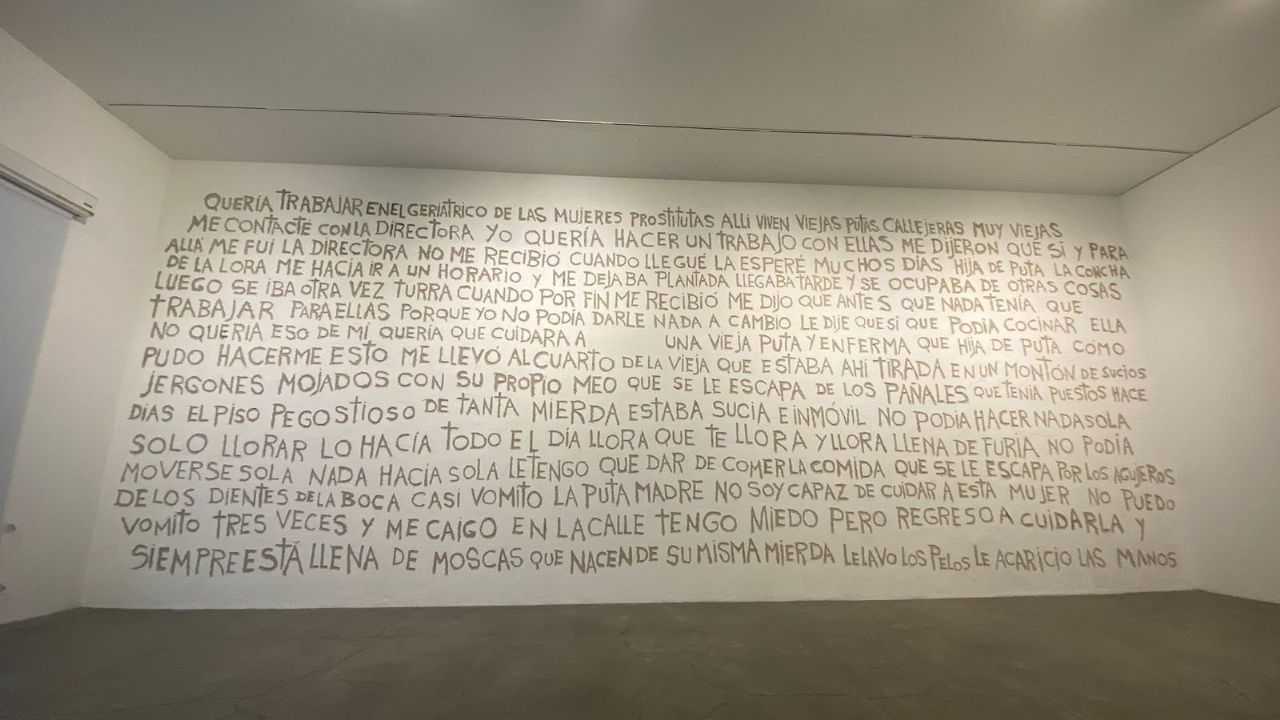 QUERÍA TRABAJAR EN EL GERIÁTRICO DE LAS MUJERES PROSTITUTAS ALLI VIVEN VIEJAS PUTAS CALLEJERAS MUY VIEJAS
ME CONTACTÉ CON LA DIRECTORA YO QUERÍA HACER UN TRABAJO CON ELLAS ME DIJERON QUE SÍ Y PARA
ALLÁ ME FUI LA DIRECTORA NO ME RECIBIÓ CUANDO LLEGUÉ LA ESPERÉ MUCHOS DÍAS HIJA DE PUTA LA CONCHA
DE LA LORA ME HACÍA IR A UN HORARIO Y ME DEJABA PLANTADA LLEGABA TARDE Y SE OCUPABA DE OTRAS COSAS
LUEGO SE IBA OTRA VEZ TURRA CUANDO POR FIN ME RECIBIÓ ME DIJO QUE ANTES QUE NADA TENÍA QUE
TRABAJAR PARA ELLAS PORQUE YO NO PODÍA DARLE NADA A CAMBIO LE DIJE QUE SI QUE PODÍA COCINAR ELLA
NO QUERÍA ESO DE MÍ QUERÍA QUE CUIDARA A UNA VIEJA PUTA Y ENFERMA QUE HIJA DE PUTA CÓMO
PUDO HACERME ESTO ME LLEVÓ AL CUARTO DE LA VIEJA QUE ESTABA AHÍ TIRADA EN UN MONTÓN DE SUCIOS
JERGONES MOJADOS CON SU PROPIO MEO QUE SE LE ESCAPA DE LOS PAÑALES QUE TENÍA PUESTOS HACE
DÍAS EL PISO PEGOSTIOSO DE TANTA MIERDA ESTABA SUCIA E INMÓVIL NO PODÍA HACER NADA SOLA
SOLO LLORAR LO HACÍA TODO EL DÍA LLORA QUE TE LLORA Y LLORA LLENA DE FURIA NO PODÍA
MOVERSE SOLA NADA HACÍA SOLA LE TENGO QUE DAR DE COMER LA COMIDA QUE SE LE ESCAPA POR LOS AGUJEROS
DE LOS DIENTES DE LA BOCA CASI VOMITO LA PUTA MADRE NO SOY CAPAZ DE CUIDAR A ESTA MUJER NO PUEDO
VOMITO TRES VECES Y ME CAIGO EN LA CALLE TENGO MIEDO PERO REGRESO A CUIDARLA Y
SIEMPRE ESTÁ LLENA DE MOSCAS QUE NACEN DE SU MISMA MIERDA LE LAVO LOS PELOS LE ACARICIO LAS MANOS